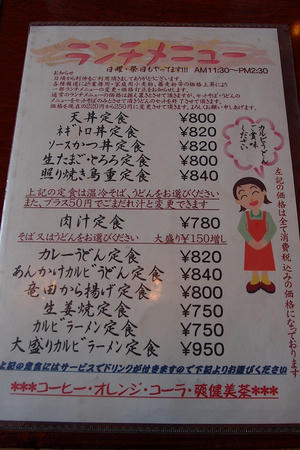 ランチメニュー
日曜・祭日もやってます!!! AM11:30～PM2:30
お知らせ
日頃から利休をご利用頂きましてありがとうございます。
ご賞味
ください
カルビうどん
天丼定食 ¥800
ネギトロ丼定食 ¥820
ソースかつ丼定食 ¥820
生たまごとろろ定食 ¥800
照り焼き鳥重定食 ¥840
上記の定食は温冷そば、うどんをお選びください
また、プラス50円でごまだれ汁と変更できます
肉汁定食 ¥780
そば又はうどんをお選びください 大盛り¥150増し
カレーうどん定食 ¥820
あんかけカルビうどん定食 ¥840
竜田から揚げ定食 ¥800
生姜焼定食 ¥750
カルビラーメン定食 ¥750
大盛りカルビラーメン定食 ¥950
左記の価格は全て消費税込みの価格になっております
上記の定食にはサービスでドリンクが付きますので下記よりお選びください
***コーヒー・オレンジ・コーラ・爽健美茶***